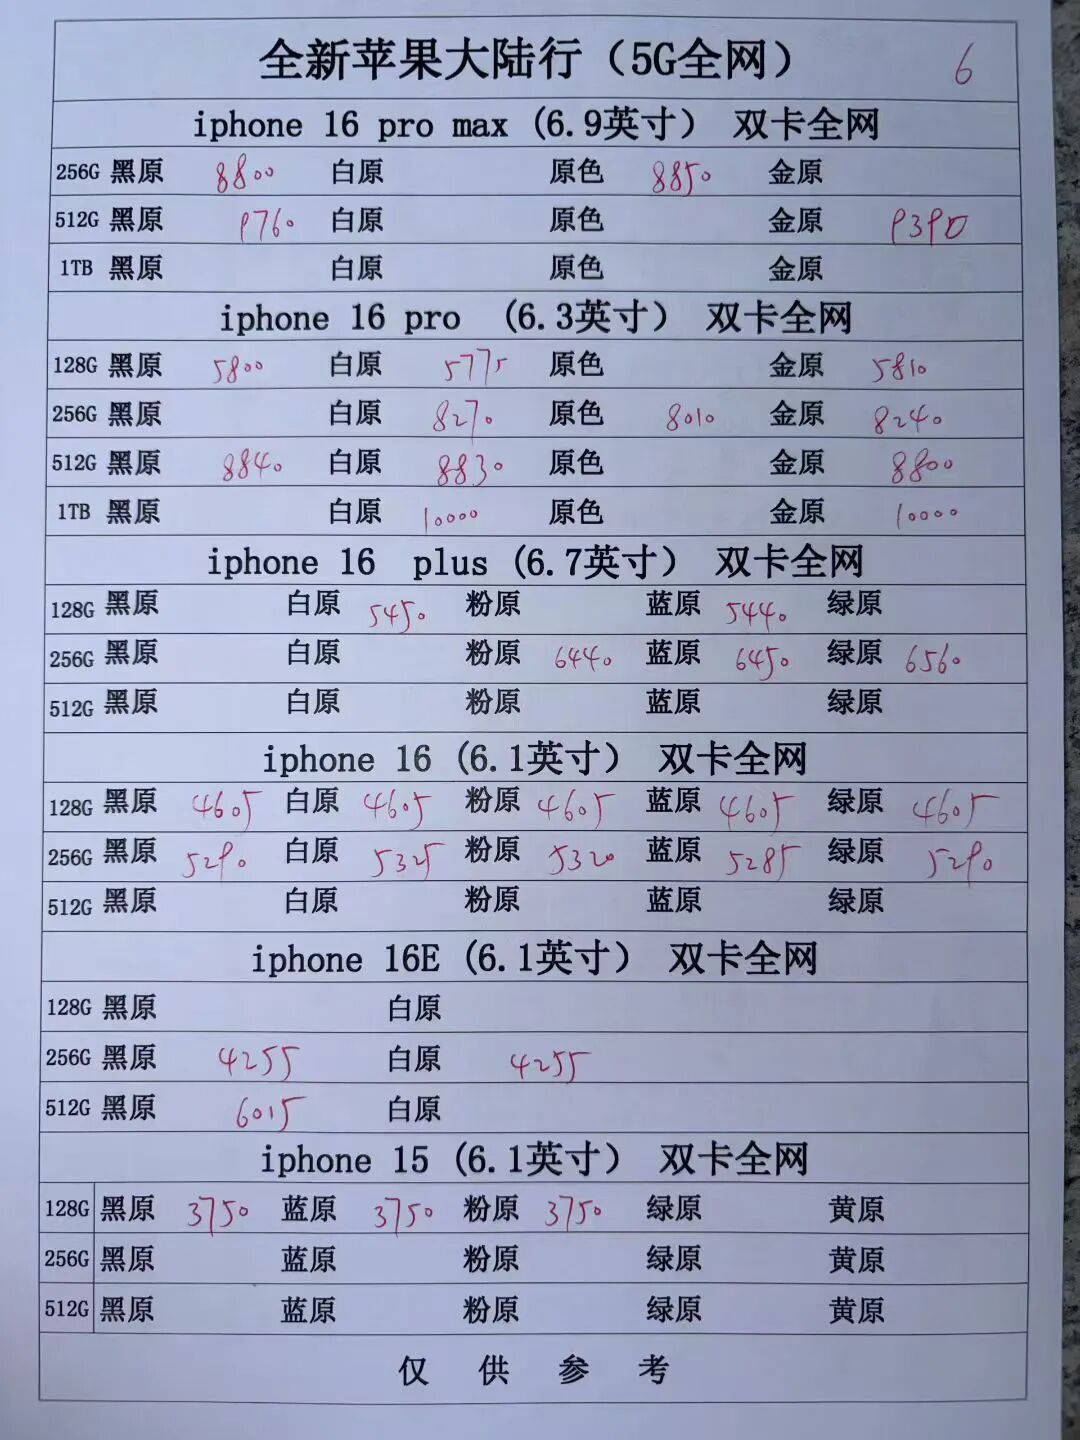 全新苹果大陆行（5G全网） 6
iphone 16 pro max (6.9英寸） 双卡全网
256G 黑原 8800 白原 原色 8850 金原
512G 黑原 9760 白原 原色 金原 9390
1TB 黑原 白原 原色 金原
iphone 16 pro （6.3英寸） 双卡全网
128G 黑原 5800 白原 5775 原色 金原 5810
256G 黑原 白原 8270 原色 8010 金原 8240
512G 黑原 8840 白原 8830 原色 金原 8800
1TB 黑原 白原 10000 原色 金原 10000
iphone 16 plus (6.7英寸） 双卡全网
128G 黑原 白原 5450 粉原 蓝原 5440 绿原
256G 黑原 白原 粉原 6440 蓝原 6450 绿原 6560
512G 黑原 白原 粉原 蓝原 绿原
iphone 16 (6.1英寸） 双卡全网
128G 黑原 4605 白原 4605 粉原 4605 蓝原 4605 绿原 4605
256G 黑原 5290 白原 5325 粉原 5320 蓝原 5285 绿原 5290
512G 黑原 白原 粉原 蓝原 绿原
iphone 16E (6.1英寸） 双卡全网
128G 黑原 白原
256G 黑原 4255 白原 4255
512G 黑原 6015 白原
iphone 15 (6.1英寸） 双卡全网
128G 黑原 3750 蓝原 3750 粉原 3750 绿原 黄原
256G 黑原 蓝原 粉原 绿原 黄原
512G 黑原 蓝原 粉原 绿原 黄原
仅供参考